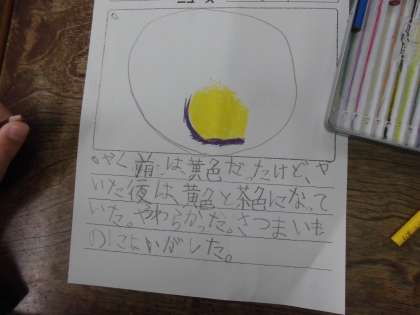 ニュース
やく前は黄色だったけど、や
いた後は、黄色と茶色になって
いた。やわらかった。さつまいも
のにおいがした。